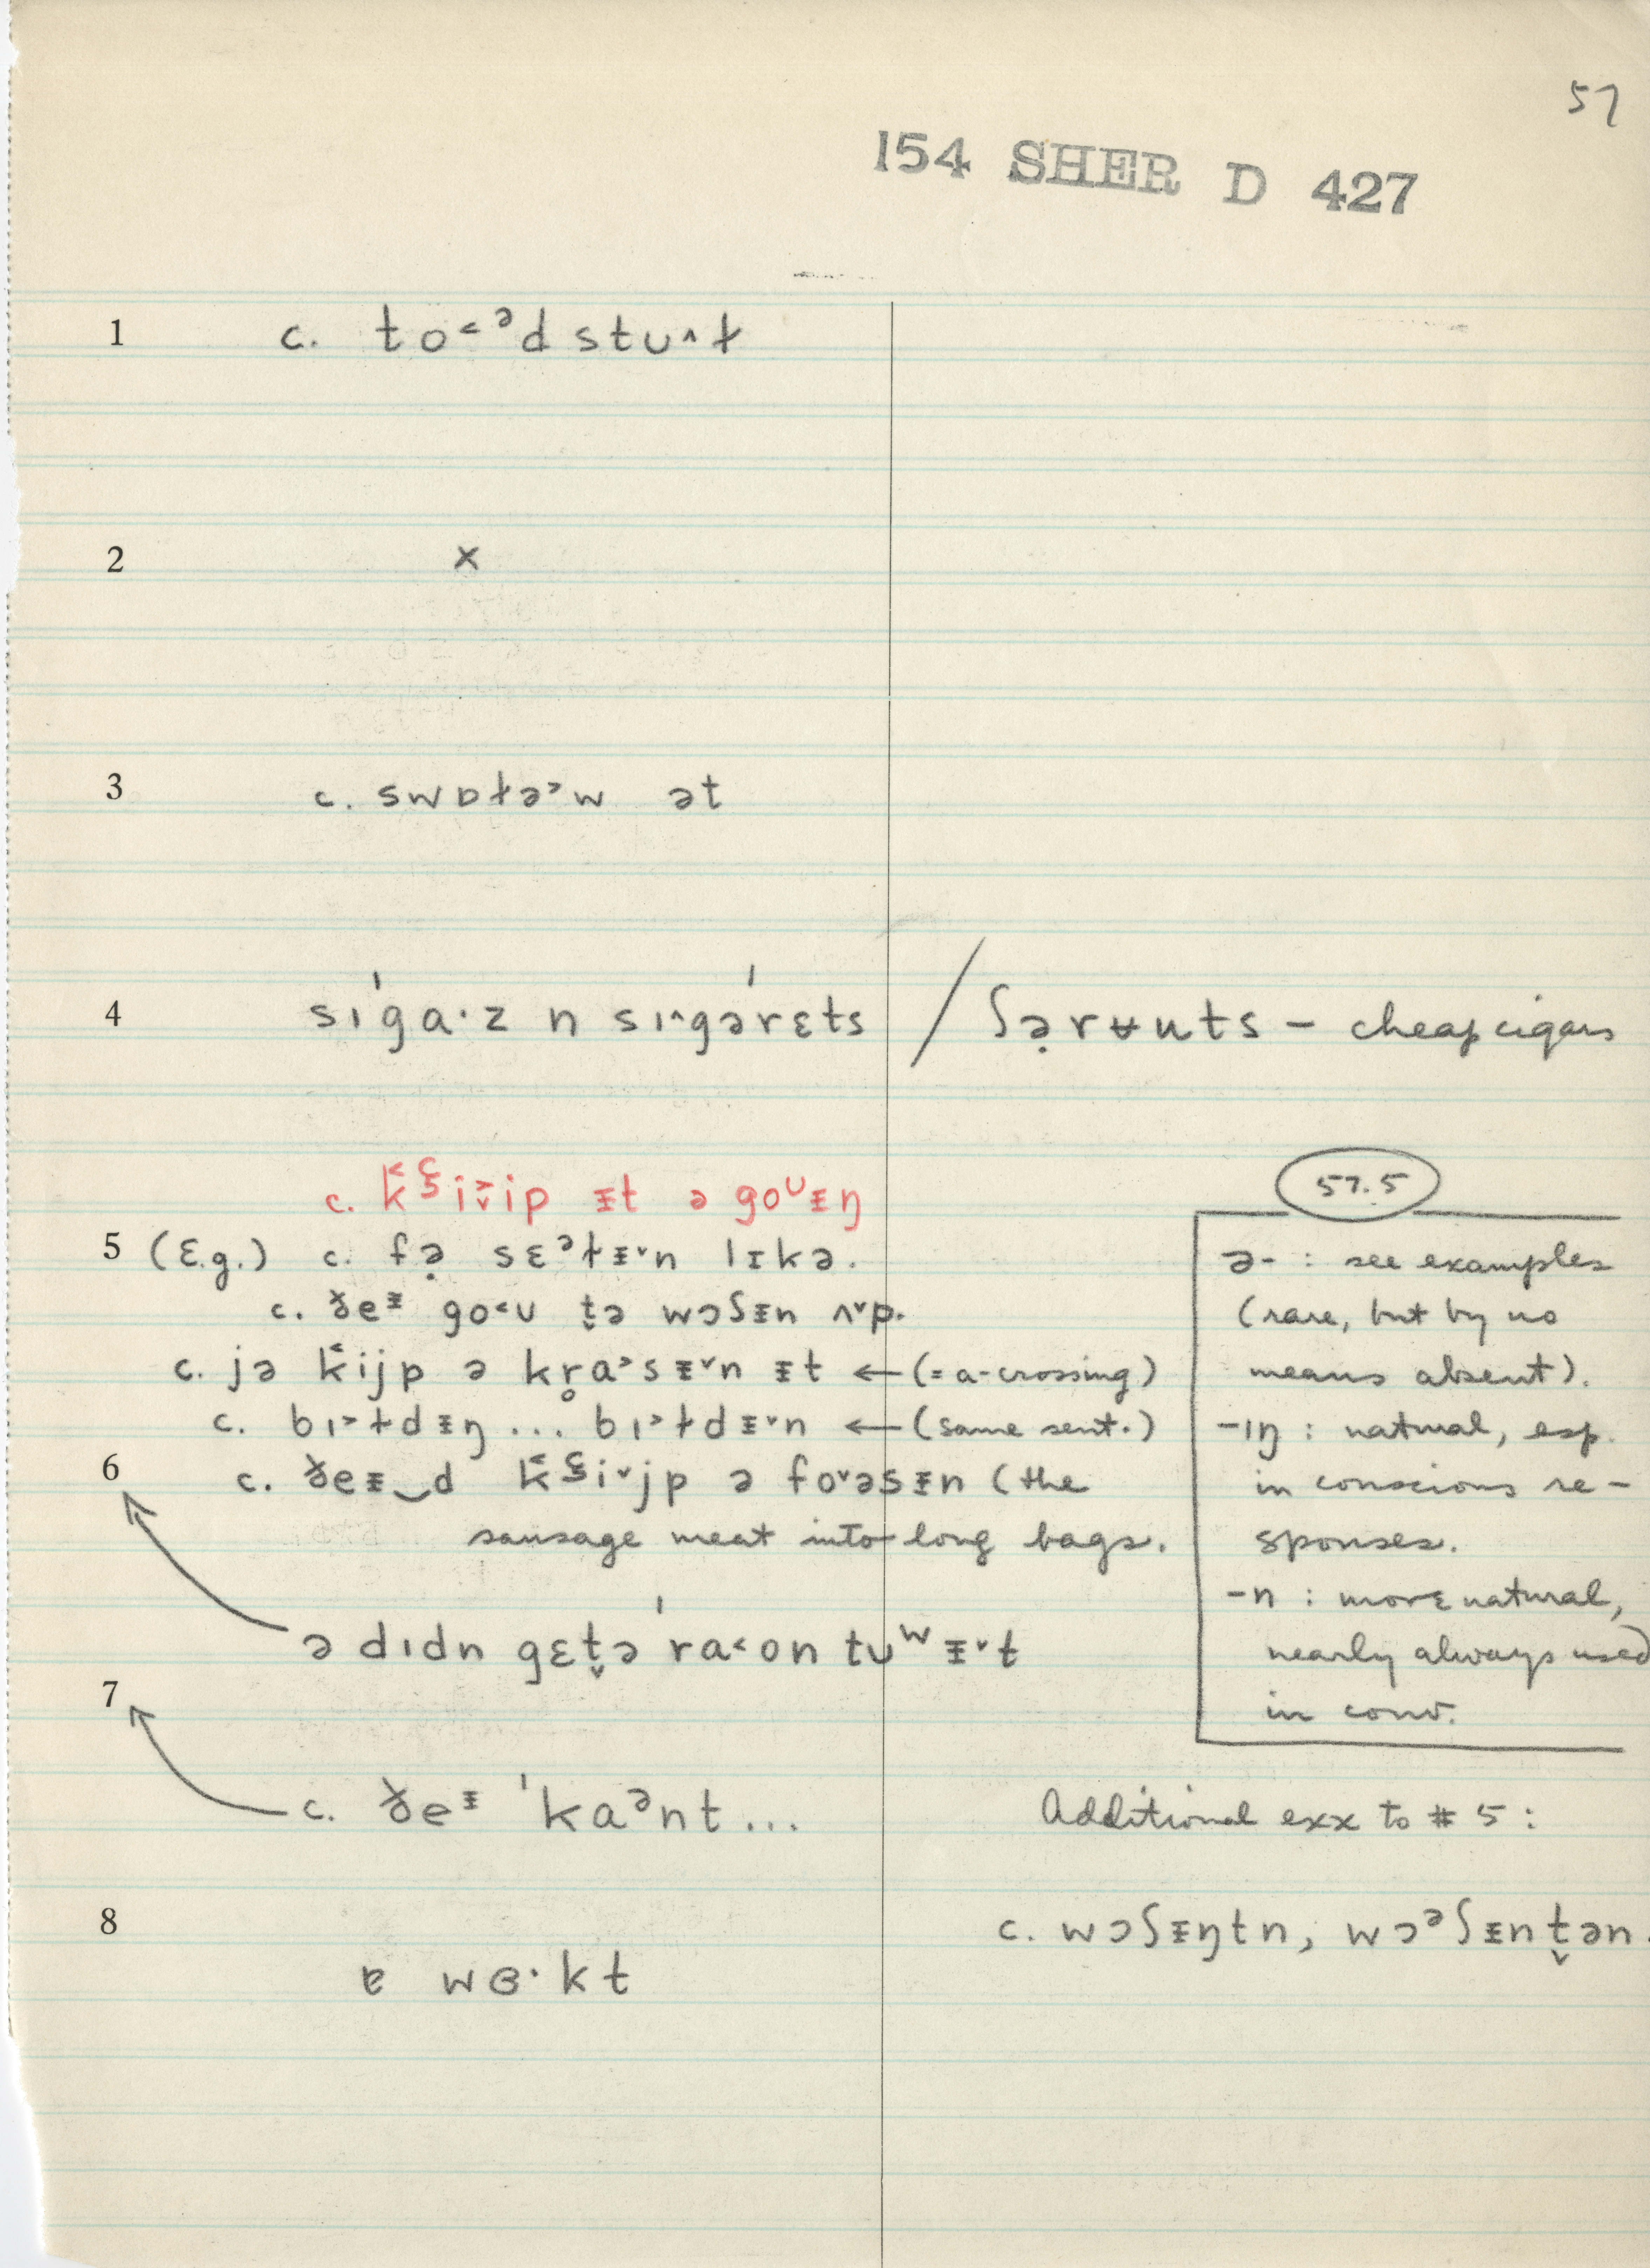 57
154 SHER D 427
1 c. to˂ᵊd stu˄ɫ
2 x
3 c. swɒɫə˃w ət
4 sɪˈgaˑz n sɪ˄gəˈrɛts / ʃə̣rʉuts – cheap cigars
c. k̘ᶜ̧iˇ̬ip ᵻt ə goᶸᵻŋ
5 (E.g.) c. fə̣ sɛᵊɫᵻˇn lɪkə.
c. ɣ̵eᵻ go˂ᴜ t̬ə wɔʃᵻn ʌˇp.
c. jə k̘ijp ə kr̥a˃sᵻˇn ᵻt ← (= a-crossing)
c. bɪ˃ɫdᵻŋ ... bɪ˃ɫdᵻˇn ← (same sent.)
6 c. ðeᵻ‿d k̘ᶜ̧iˇjp ə foˇəsᵻn (the
sausage meat into long bags.
ə dɪdn gɛt̬ə ˈra˂on tuʷᵻˇt
7
c. ðeᵻ ˈkaᵊnt...
8 ɐ wɞˑkt
57.5
ə- : see examples
(rare, but by no
means absent).
-ɪŋ : natural, esp.
in conscious re-
sponses.
-n : more natural,
nearly always used
in conv.
Additional exx to # 5 :
c. wɔʃᵻŋtn, wɔᵊʃᵻnt̬ən.